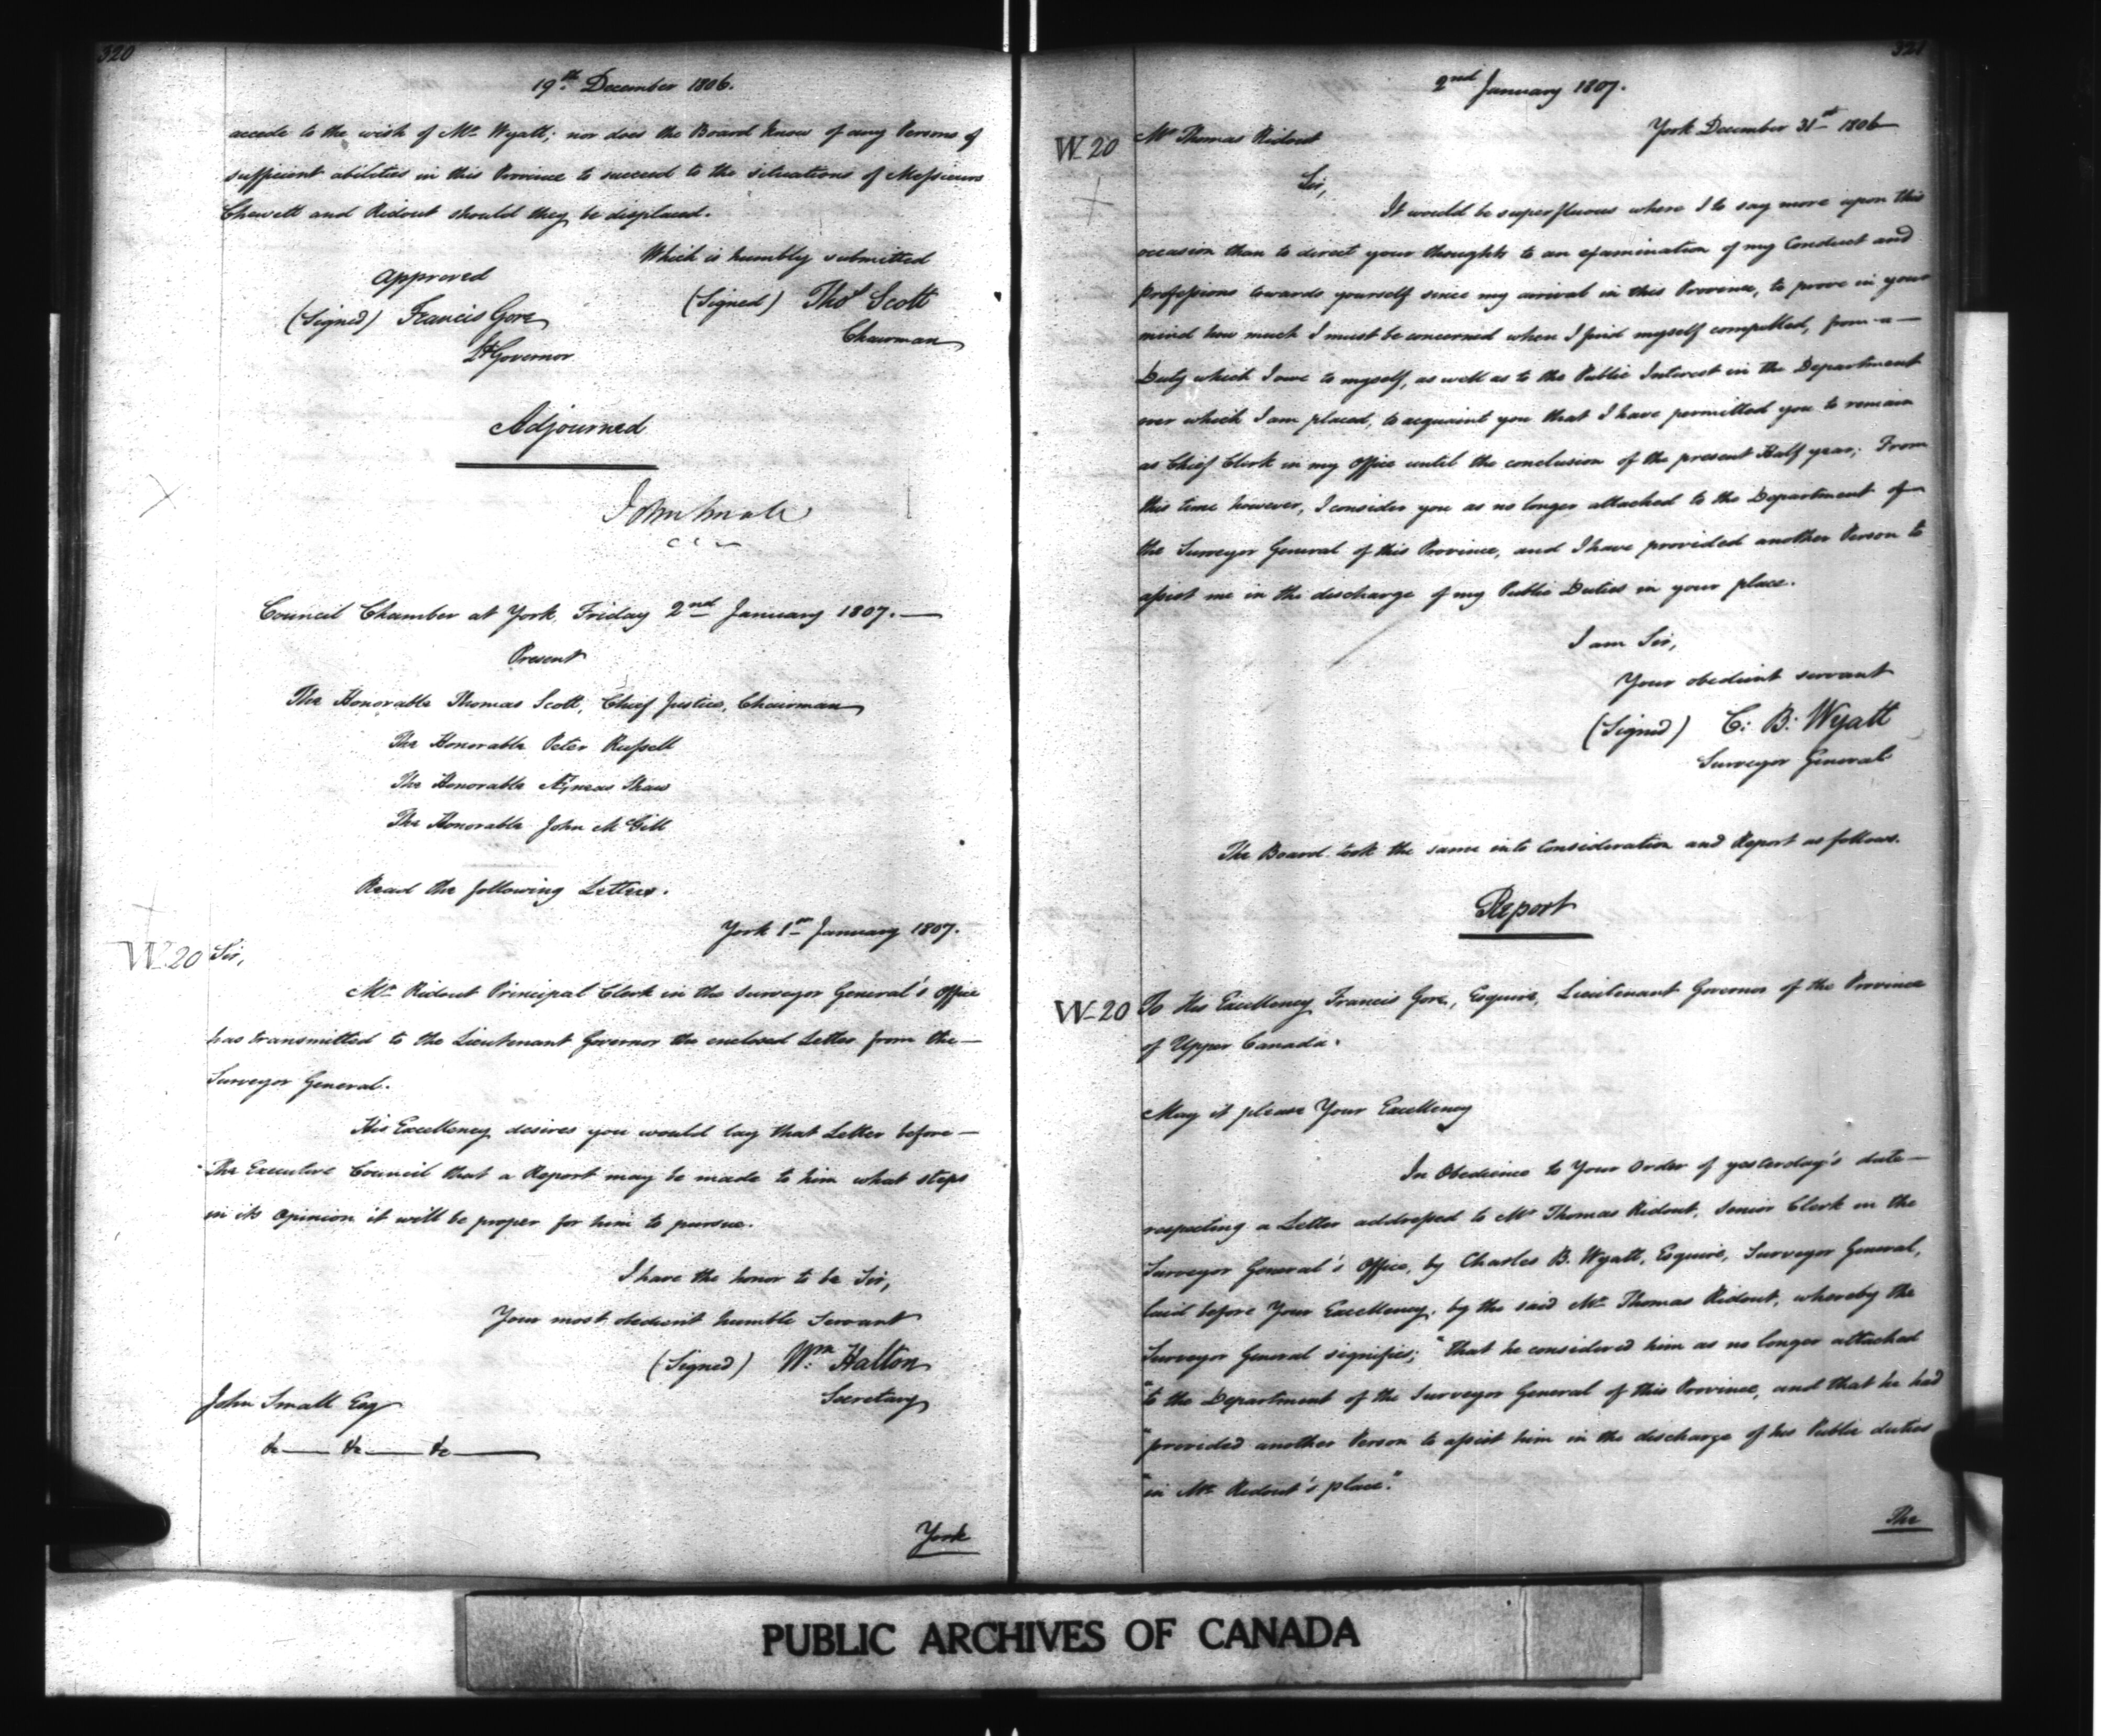 320
19th December 1806.
accede to the wish of Mr Wyatt; nor does the Board know of any Persons of
sufficient abilities in this Province to succeed to the situations of Messieurs
Chewett and Ridout should they be displaced.
Which is humbly submitted
Approved
(Signed) Thos Scott
(Signed) Francis Gore
Chairman
Lt Governor
Adjourned
John Small
Council Chamber at York, Friday 2nd January 1807. —
Present
The Honorable Thomas Scott, Chief Justice, Chairman
The Honorable Peter Russell
The Honorable Æneas Shaw
The Honorable John McGill
Read the following Letters.
York 1st January 1807.
W-20 Sir,
Mr Ridout Principal Clerk in the Surveyor General's Office
has transmitted to the Lieutenant Governor the enclosed Letter from the —
Surveyor General.
His Excellency desires you would lay that Letter before —
The Executive Council that a Report may be made to him what steps
in its Opinion it will be proper for him to pursue.
I have the honor to be Sir,
Your most obedient humble Servant
(Signed) Wm Halton
Secretary
John Small Esq
&c — &c — &c —
York
321
2nd January 1807.
York December 31st 1806
W-20 Mr Thomas Ridout
Sir,
It would be superfluous where I to say more upon this
occasion than to direct your thoughts to an examination of my Conduct and
Professions towards yourself since my arrival in this Province, to prove in your
mind how much I must be concerned when I find myself compelled, from a —
Duty which I owe to myself, as well as to the Public Interest in the Department
over which I am placed, to acquaint you that I have permitted you to remain
as Chief Clerk in my Office until the conclusion of the present Half year; From
this time however, I consider you as no longer attached to the Department of
the Surveyor General of this Province, and I have provided another Person to
assist me in the discharge of my Public Duties in your place.
I am Sir,
Your obedient servant
(Signed) C: B: Wyatt
Surveyor General
The Board took the same into Consideration and Report as follows.
Report
W-20 To His Excellency Francis Gore, Esquire, Lieutenant Governor of the Province
of Upper Canada.
May it please Your Excellency
In Obedience to Your Order of yesterday's date —
respecting a Letter addressed to Mr Thomas Ridout, Senior Clerk in the
Surveyor General's Office, by Charles B. Wyatt, Esquire, Surveyor General,
laid before Your Excellency, by the said Mr Thomas Ridout, whereby the
Surveyor General signifies; "That he considered him as no longer attached
"to the Department of the Surveyor General of this Province, and that he had
"provided another Person to assist him in the discharge of his Public duties
"in Mr Ridout's place."
The
PUBLIC ARCHIVES OF CANADA